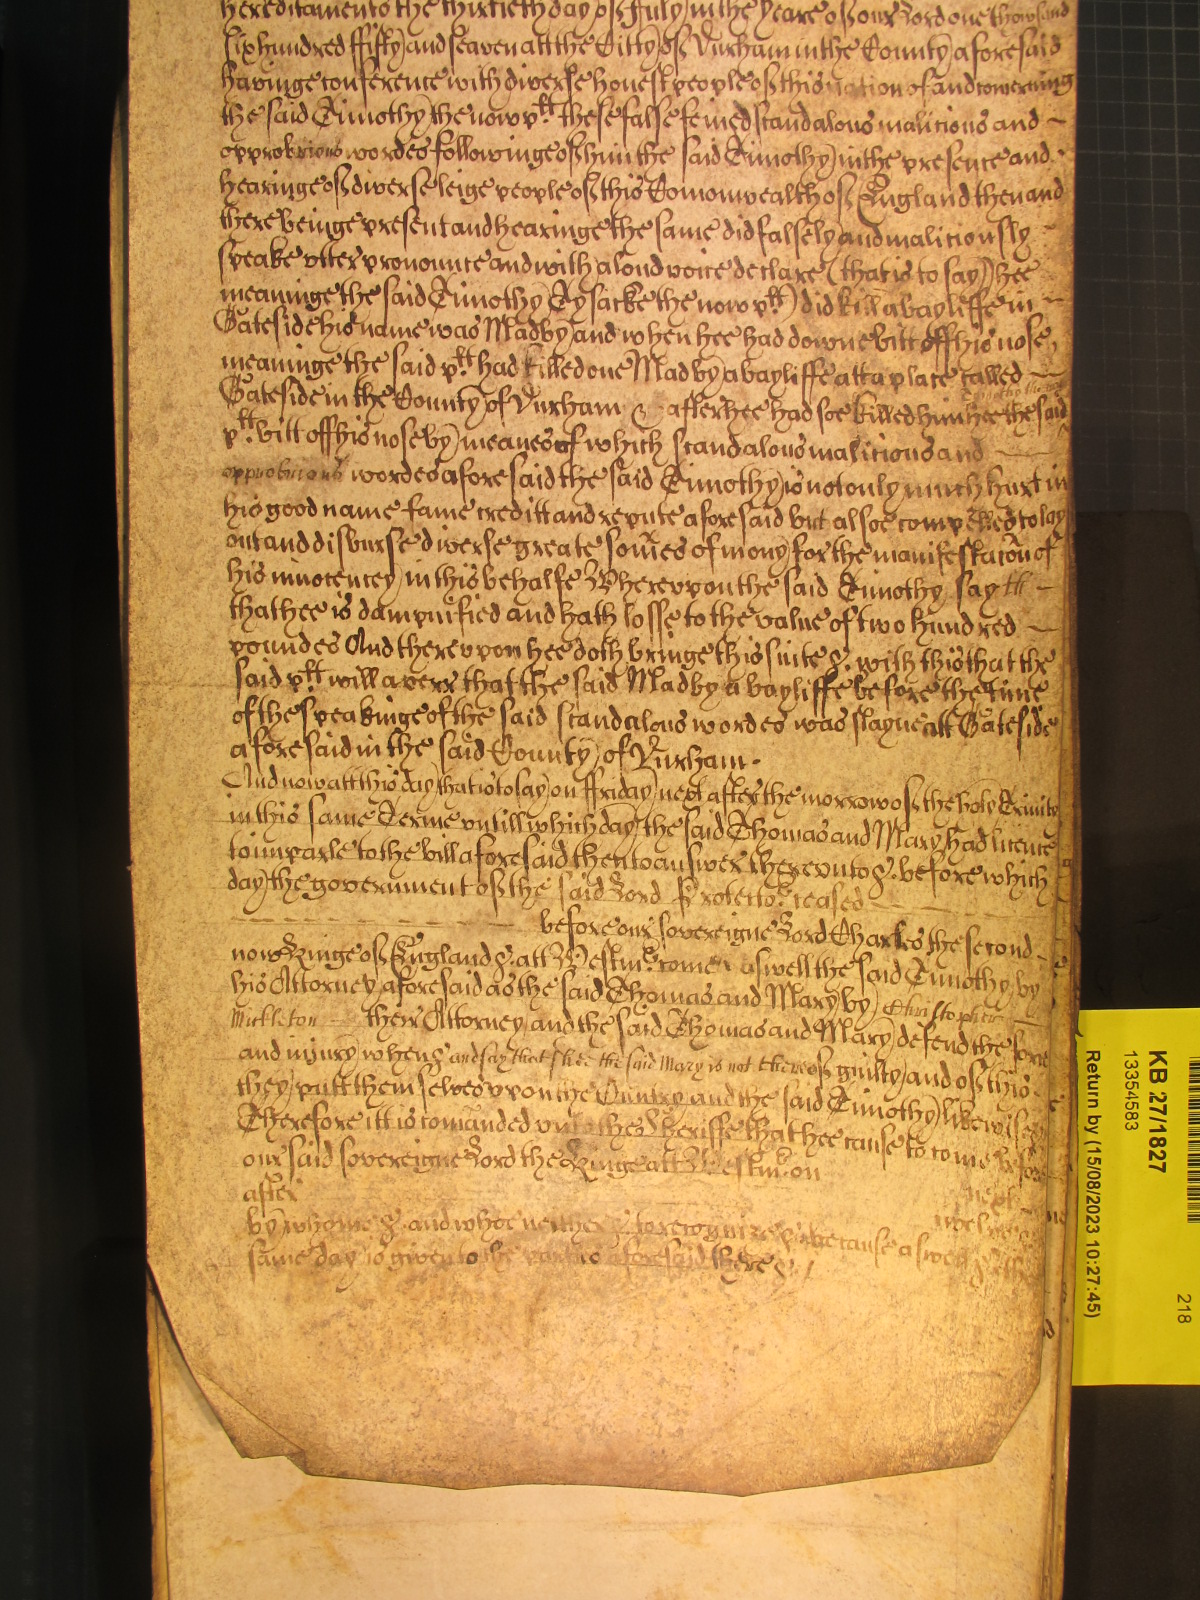 hereditaments the thirtieth day of July in the yeare of our Lord one thowsand
six hundred ffifty and seaven att the Citty of Durham in the County aforesaid
havinge conference with diverse honest people of this nation of and concerning
the said Timothy the now plt these false feined scandalous malicious and
opprobrious wordes followinge of him the said Timothy in the presence and
hearinge of diverse leige people of this Comonwealth of England then and
there beinge present and hearinge the same did falsely and maliciously
speake utter pronounce and with a loud voice declare (that is to say) hee
meaninge the said Timothy Tysacke the now plt) did kill a bayliffe in
Gateside his name was Madby and when hee had downe bitt off his nose,
meaninge the said plt had killed one Madby a bayliffe att a place called
Gateside in the County of Durham & after hee had soe killed him hee the said
plt bitt off his nose by meanes of which scandalous malicious and
opprobrious wordes aforesaid the said Timothy is not only much hurt in
his good name fame creditt and repute aforesaid but alsoe compelled to lay
out and disburse diverse greate somes of mony for the manifestacon of
his innocencey in this behalfe Whereupon the said Timothy sayth
that hee is dampnified and hath losse to the value of two hundred
poundes And thereupon hee doth bringe this suite &. with this that the
said plt will averr that the said Madby a bayliffe before the time
of the speakinge of the said scandalous wordes was slayne att Gateside
aforesaid in the said County of Durham.
And now att this day that is to say on ffriday next after the morrow of the holy Trinity
in this same Terme untill which day the said Thomas and Mary had licence
to imparle to the bill aforesaid then to answer thereunto &. before which
day the government of the said Lord Protector ceased
before our sovereigne Lord Charles the second
now Kinge of England &. att Westmr come aswell the said Timothy by
his Attorney aforesaid as the said Thomas and Mary by Christopher
Mulleton their Attorney and the said Thomas and Mary defend the force
and injury when & and say that shee the said Mary is not thereof guilty and of this
they putt themselves upon the Cuntry and the said Timothy likewise
Therefore itt is comanded unto the Sheriffe that hee cause to come before
our said sovereigne Lord the Kinge att Westmr on
after next
by whome &. and whoe neither &. to recognize &. because aswell
same day is given to the parties aforesaid there &.
KB 27/1827
13354583
218
Return by (15/08/2023 10:27:45)